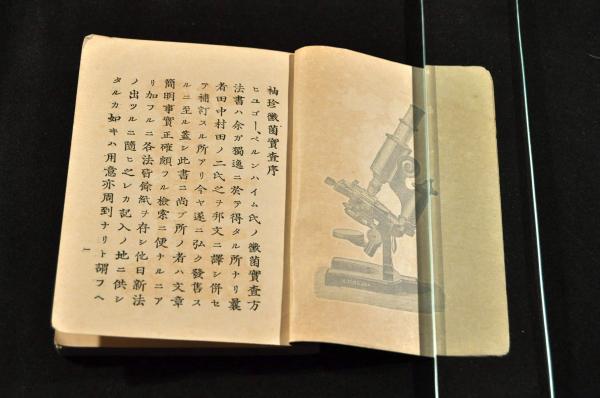 袖珍黴菌實査序
ヒユゴー、ベルンハイム氏ノ黴菌實査方
法書ハ余ガ獨逸ニ於テ得タル所ナリ曩
者田中村田ノ二氏之ヲ邦文ニ譯シ併セ
テ補訂スル所アリ今ヤ遂ニ弘ク發售ス
ルニ至ル蓋シ此書ニ尚ブ所ノ者ハ文章
簡明事實正確頗フル檢索ニ便ナルニア
リ加フルニ各法皆餘紙ヲ存シ他日新法
ノ出ツルニ隨ヒ之レカ記入ノ地ニ供シ
タルカ如キハ用意亦周到ナリト謂フヘ
一